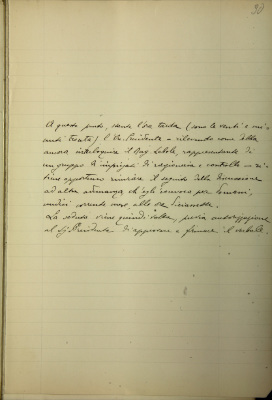 30
A questo punto, stante l'ora tarda (sono le venti e mi-
nuti trenta) l'On. Presidente - rilevando come debba
ancora interloquire il Rag. Lobole, rappresentante di
un gruppo di impiegati di ragioneria e controllo - ri-
tiene opportuno rinviare il seguito della discussione
ad altra adunanza ch'egli convoca per domani,
undici corrente mese, alle ore
La seduta viene quindi tolta, previa autorizzazione
al Sig. Presidente di approvare e firmare il verbale.